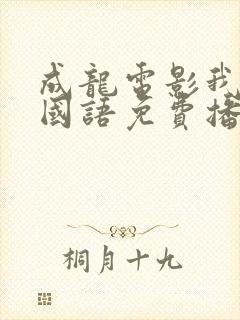 成龍電影我
國語免費播
桐月十九